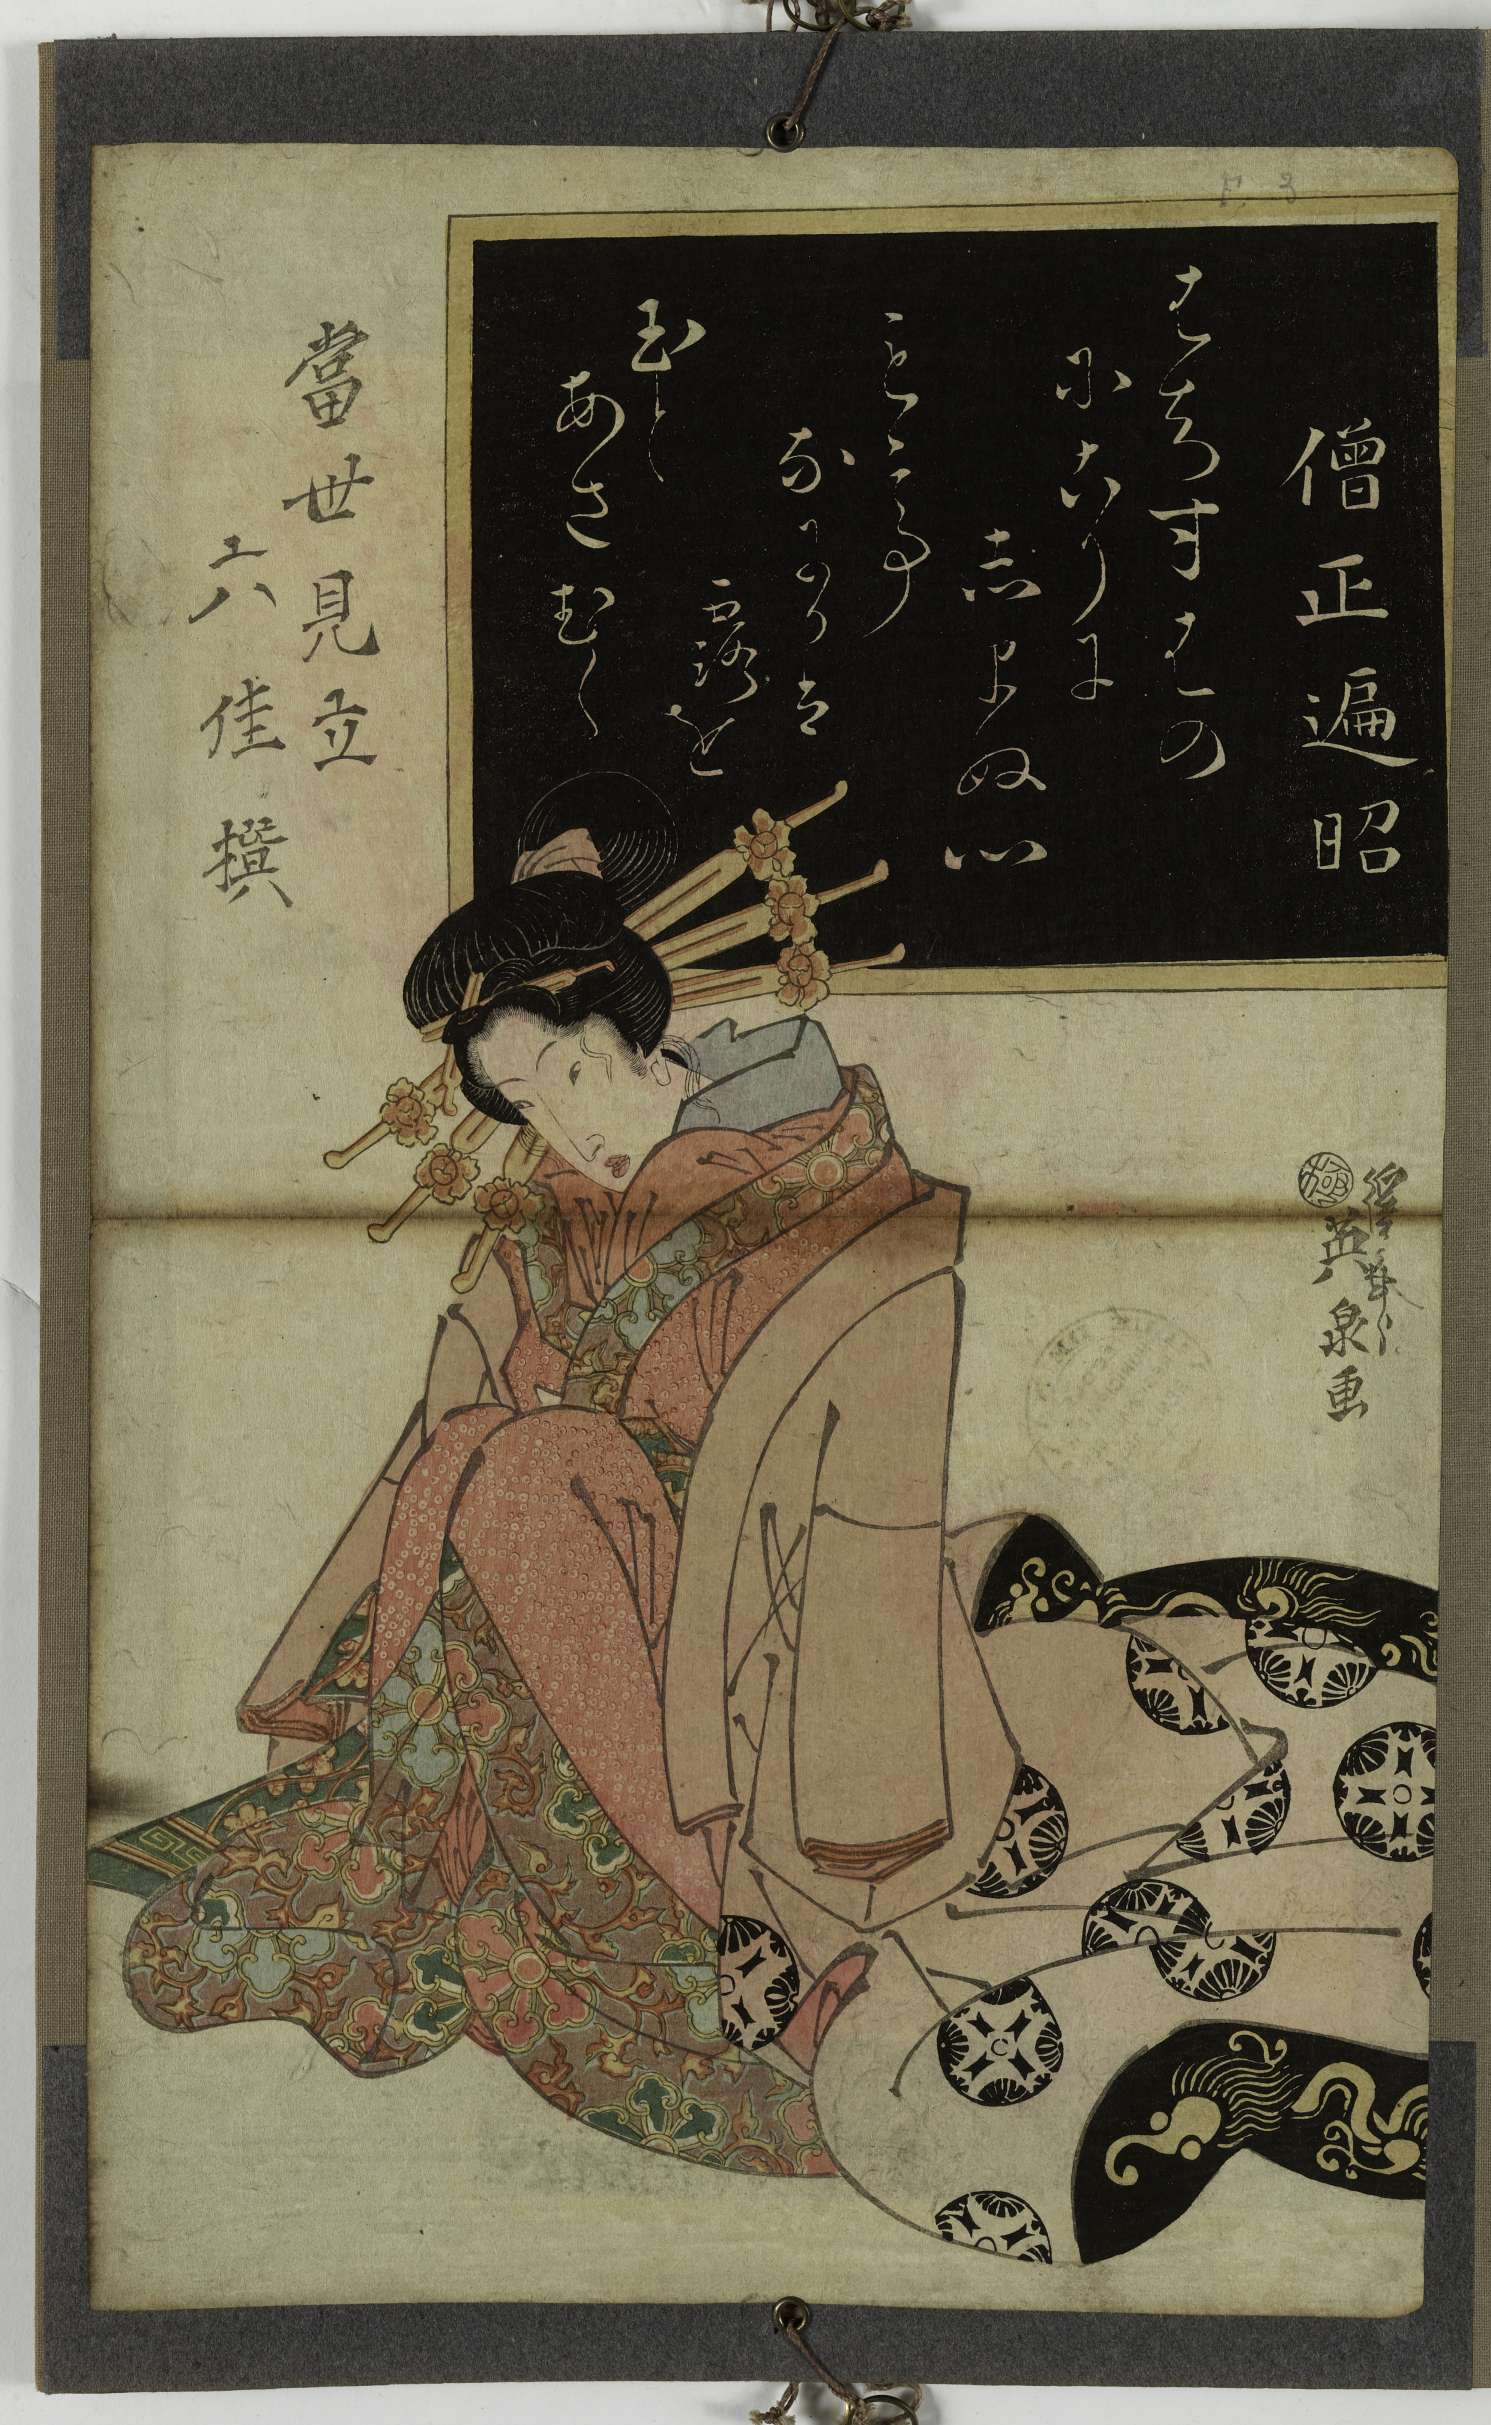 僧正遍昭
はちすはの
にこりに
志まぬ心
もて
なにかは
露を
玉と
あさむく
當世見立
六佳撰
極
溪斎
英泉画